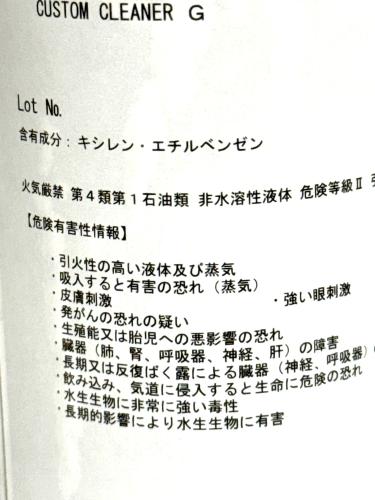 CUSTOM CLEANER G
Lot No.
含有成分：キシレン・エチルベンゼン
火気厳禁 第４類第１石油類 非水溶性液体 危険等級Ⅱ
【危険有害性情報】
・引火性の高い液体及び蒸気
・吸入すると有害の恐れ（蒸気）
・皮膚刺激 ・強い眼刺激
・発がんの恐れの疑い
・生殖能又は胎児への悪影響の恐れ
・臓器（肺、腎、呼吸器、神経、肝）の障害
・長期又は反復ばく露による臓器（神経、呼吸器）
・飲み込み、気道に侵入すると生命に危険の恐れ
・水生生物に非常に強い毒性
・長期的影響により水生生物に有害